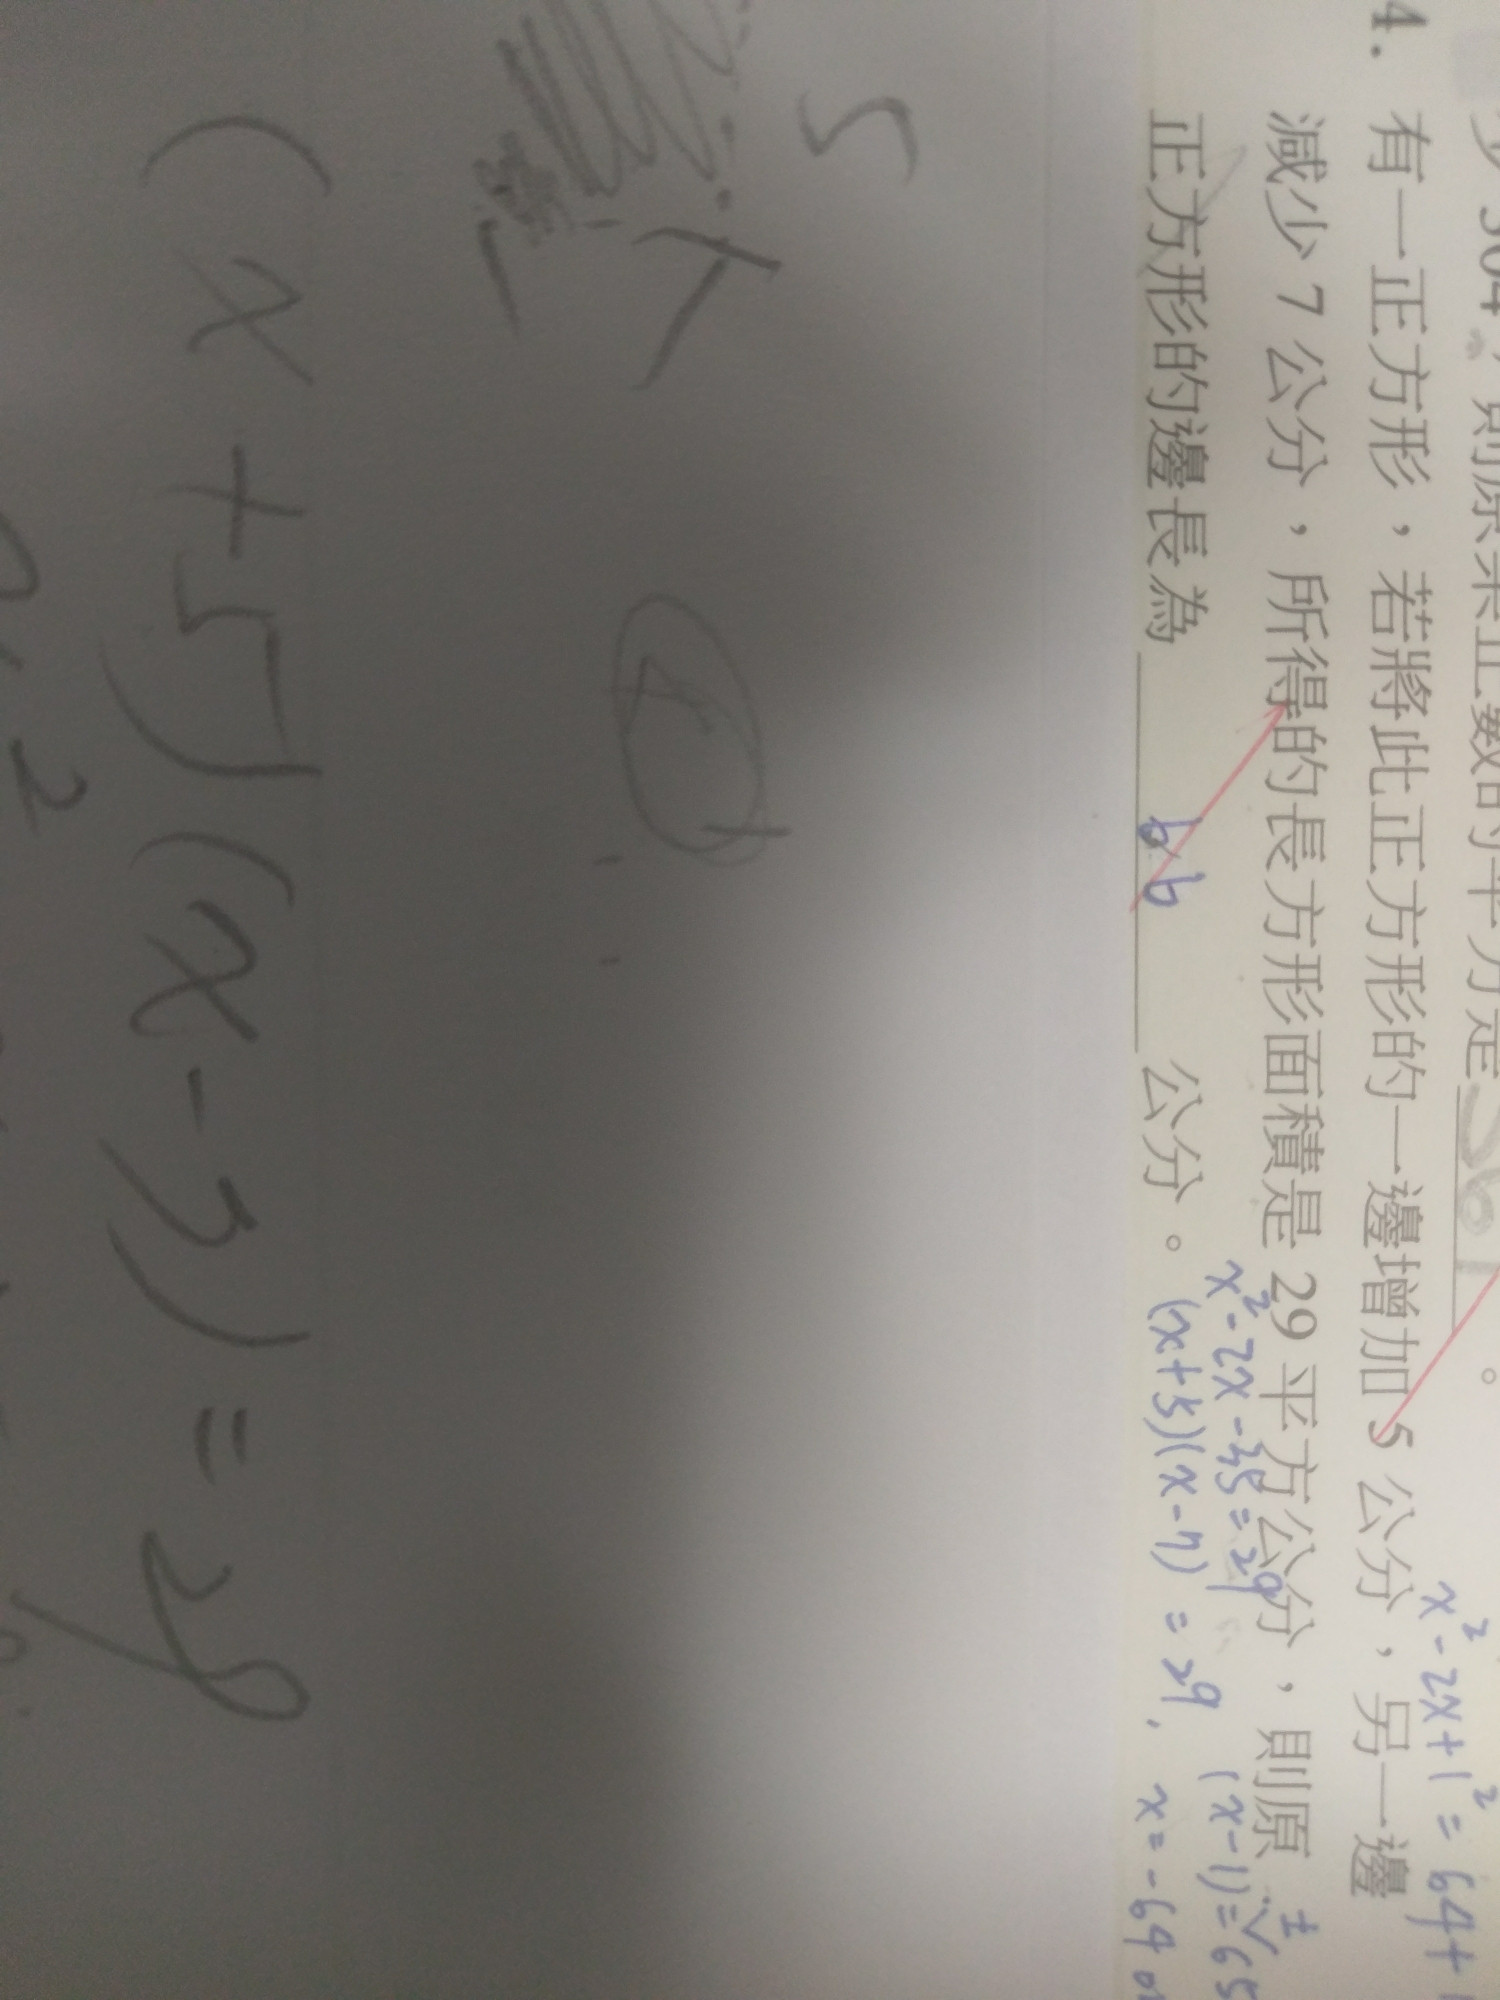 304，則原來正數的平方是 361 。
4. 有一正方形，若將此正方形的一邊增加 5 公分，另一邊
減少 7 公分，所得的長方形面積是 29 平方公分，則原
正方形的邊長為 66 公分。
x²-2x+1²=64+1
x²-2x-35=29
(x-1)=±√65
(x+5)(x-7)=29,
x=-64 or
5
(x+5)(x-3)=29
2